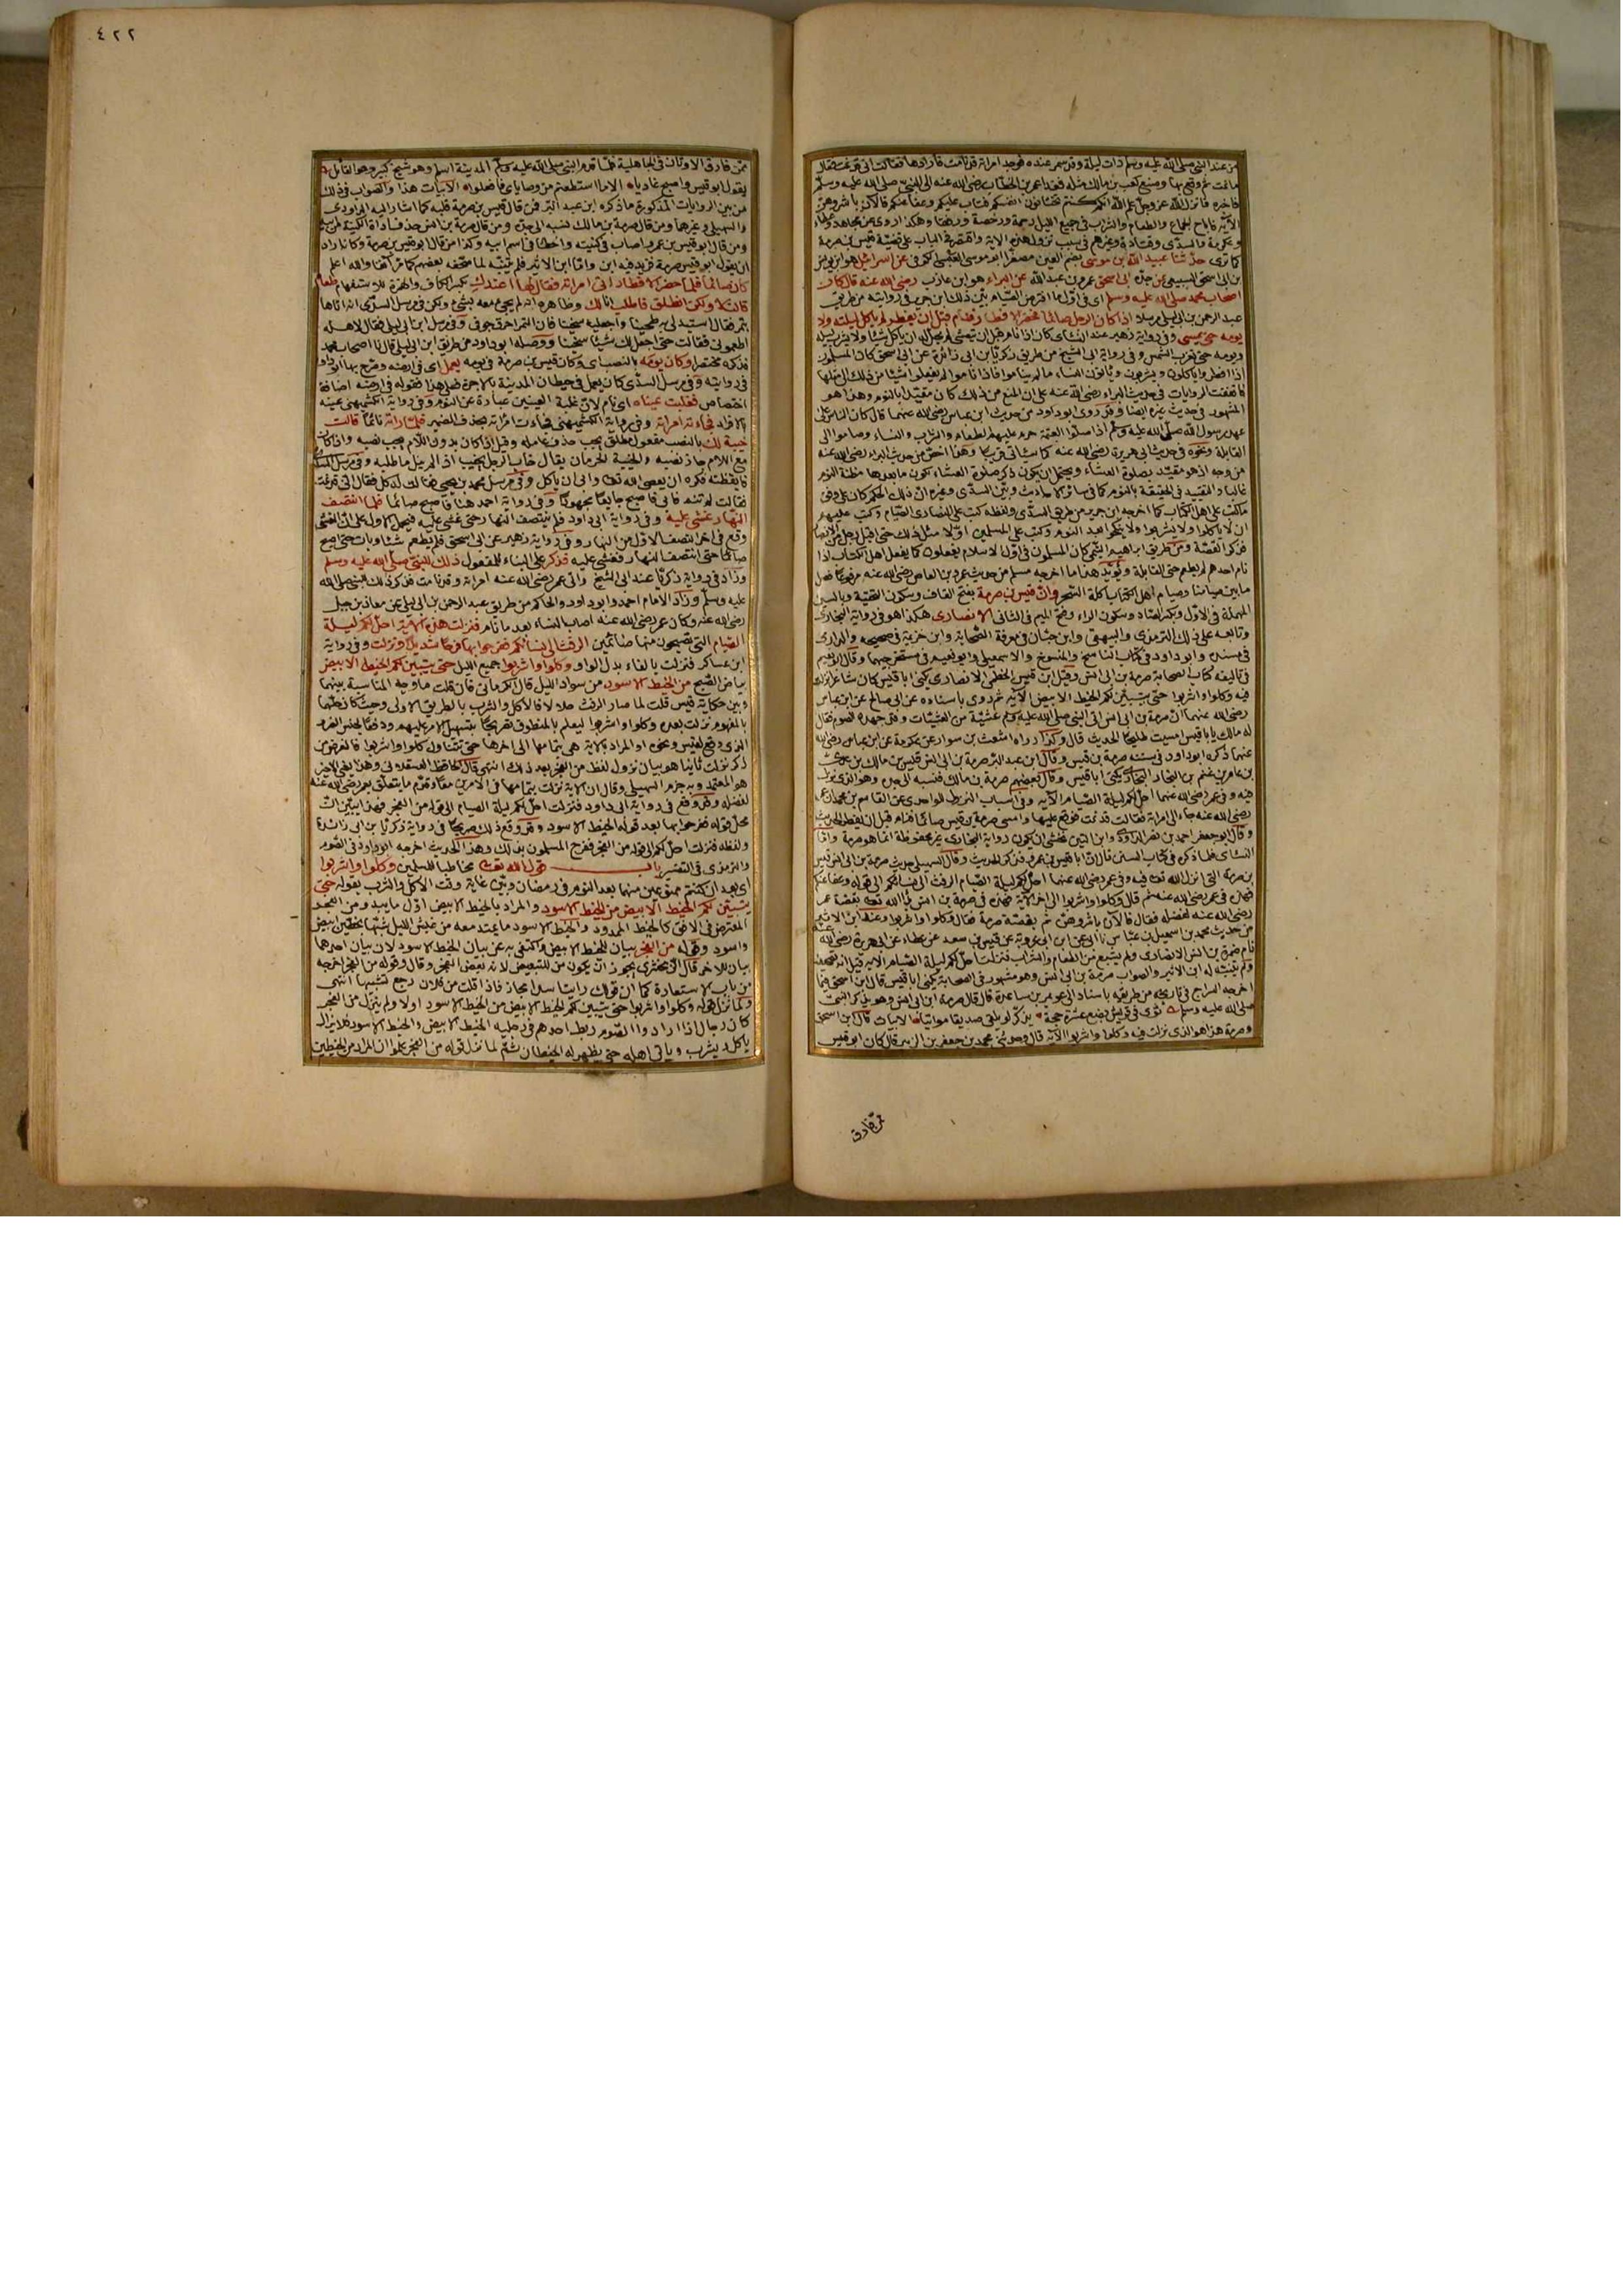 من عند النبي صلى الله عليه وسلم ذات ليلة وقد سمر عنده فوجد امراته قد نامت فارادها فقالت اني قد نمت فقال
ما نمت ثم وقع بها وصنع كعب بن مالك مثله فغدا عمر بن الخطاب رضي الله عنه الى النبي صلى الله عليه وسلم
فاخبره فانزل الله عز وجل علم الله انكم كنتم تختانون انفسكم فتاب عليكم وعفا عنكم فالآن باشروهن
الآية فاباح الجماع والطعام والشراب في جميع الليل رحمة ورخصة ورفقا وهكذا روي عن مجاهد وعطاء
وعكرمة والسدي وقتادة وغيرهم في سبب نزول هذه الاية واقتصر في الباب على قصة قيس بن صرمة
كما ترى حدثنا عبيد الله بن موسى بضم العين مصغرا ابو موسى العبسي الكوفي عن اسرائيل هو ابن يونس
بن ابي اسحق السبيعي عن جده ابي اسحق عمرو بن عبد الله عن البراء هو ابن عازب رضي الله عنه قال كان
اصحاب محمد صلى الله عليه وسلم اي في اول ما افترض الصيام بين ذلك ابن جرير في روايته من طريق
عبد الرحمن بن ابي ليلى مرسلا اذا كان الرجل صائما فحضر الافطار فنام قبل ان يفطر لم ياكل ليلته ولا
يومه حتى يمسي وفي رواية زهير عند النسائي كان اذا نام قبل ان يتعشى لم يحل له ان ياكل شيئا ولا يشرب ليلته
ويومه حتى تغرب الشمس وفي رواية ابي الشيخ من طريق زكريا بن ابي زائدة عن ابي اسحق كان المسلمون
اذا افطروا ياكلون ويشربون وياتون النساء ما لم يناموا فاذا ناموا لم يفعلوا شيئا من ذلك الى مثلها
فاتفقت الروايات في حديث البراء رضي الله عنه على ان المنع من ذلك كان مقيدا بالنوم وهذا هو
المشهور في حديث غيره ايضا وقد روى ابو داود من حديث ابن عباس رضي الله عنهما قال كان الناس على
عهد رسول الله صلى الله عليه وسلم اذا صلوا العتمة حرم عليهم الطعام والشراب والنساء وصاموا الى
القابلة ونحوه في حديث ابي هريرة رضي الله عنه كما سياتي قريبا وهذا اخص من حديث البراء رضي الله عنه
من وجه اذ هو مقيد بصلوة العشاء ويحتمل ان يكون ذكر صلوة العشاء لكون ما بعدها مظنة النوم
غالبا والتقييد في الحقيقة بالنوم كما في سائر الاحاديث وبين السدي وغيره ان ذلك الحكم كان على وفق
ما كتب على اهل الكتاب كما اخرجه ابن جرير من طريق السدي ولفظه كتب على النصارى الصيام وكتب عليهم
ان لا ياكلوا ولا يشربوا ولا ينكحوا بعد النوم وكتب على المسلمين اولا مثل ذلك حتى اقبل رجل من الانصار
فذكر القصة ومن طريق ابراهيم التيمي كان المسلمون في اول الاسلام يفعلون كما يفعل اهل الكتاب اذا
نام احدهم لم يطعم حتى القابلة ويؤيد هذا ما اخرجه مسلم من حديث عمرو بن العاص رضي الله عنه مرفوعا فصل
ما بين صيامنا وصيام اهل الكتاب اكلة السحر وان قيس بن صرمة بفتح القاف وسكون التحتية وبالسين
المهملة في الاول وكسر الصاد وسكون الراء وفتح الميم في الثاني الانصاري هكذا هو في رواية البخاري
وتابعه على ذلك الترمذي والبيهقي وابن حبان في معرفة الصحابة وابن خزيمة في صحيحه والدارمي
في مسنده وابو داود في كتاب الناسخ والمنسوخ والاسمعيلي وابو نعيم في مستخرجيهما وقال ابو نعيم
في تاليفه كتاب الصحابة صرمة بن ابي انس وقيل ابن قيس الخطمي الانصاري يكنى ابا قيس كان شاعرا نزلت
فيه وكلوا واشربوا حتى يتبين لكم الخيط الابيض الآية ثم روى باسناده عن ابي صالح عن ابن عباس
رضي الله عنهما ان صرمة بن ابي انس اتى النبي صلى الله عليه وسلم عشية من العشيات وقد جهده الصوم فقال
له مالك يا ابا قيس امسيت طليحا الحديث قال وكذا رواه اشعث بن سوار عن عكرمة عن ابن عباس رضي الله
عنهما ذكره ابو داود في سننه صرمة بن قيس وقال ابن عبد البر صرمة بن ابي انس قيس بن مالك بن عدي
بن عامر بن غنم بن النجار النجاري يكنى ابا قيس وقال بعضهم صرمة بن مالك فنسبه الى جده وهو الذي نزلت
فيه وفي عمر رضي الله عنهما احل لكم ليلة الصيام الآية وفي اسباب النزول للواحدي عن القاسم بن محمد ان عمر
رضي الله عنه جاء الى امراته فقالت قد نمت فوقع عليها وامسى صرمة بن قيس صائما فنام قبل ان يفطر الحديث
وقال ابو جعفر احمد بن نصر الداودي وابن التين يخشى ان يكون رواية البخاري غير محفوظة انما هو صرمة واما
النسائي فلما ذكره في كتاب السنن قال ان ابا قيس بن عمرو فذكر الحديث وقال السهيلي حديث صرمة بن ابي انس قيس
بن صرمة التي انزل الله تعالى فيه وفي عمر رضي الله عنهما احل لكم ليلة الصيام الرفث الى نسائكم الى قوله وعفا عنكم
فهذه في عمر رضي الله عنه ثم قال وكلوا واشربوا الى اخر الاية فهذه في صرمة بن انس بدا الله تعالى بقصة عمر
رضي الله عنه لفضله فقال فالآن باشروهن ثم بقصة صرمة فقال وكلوا واشربوا وعند ابن الاثير
من حديث محمد بن اسمعيل بن عياش نا ابي عن ابن ابي عروبة عن قيس بن سعد عن عطاء عن ابي هريرة رضي الله عنه
نام ضمرة بن انس الانصاري ولم يشبع من الطعام والشراب فنزلت احل لكم ليلة الصيام الاية قيل انه تصحيف
ولم يتنبه له ابن الاثير والصواب صرمة بن ابي انس وهو مشهور في الصحابة يكنى ابا قيس قال ابن اسحق فيما
اخرجه السراج في تاريخه من طريقه باسناد الى عويمر بن ساعدة قال قال صرمة ابن ابي انس وهو يذكر النبي
صلى الله عليه وسلم ثوى في قريش بضع عشرة حجة يذكر لو يلقى صديقا مواتيا الابيات قال ابن اسحق
وصرمة هذا هو الذي نزلت فيه وكلوا واشربوا الآية قال وحدثني محمد بن جعفر بن الزبير قال كان ابو قيس
ممن فارق
٤٢٢
ممن فارق الاوثان في الجاهلية فلما قدم النبي صلى الله عليه وسلم المدينة اسلم وهو شيخ كبير وهو القائل
يقول ابو قيس واصبح غاديا الا ما استطعتم من وصاياي فافعلوا الابيات هذا والصواب في ذلك
من بين الروايات المذكورة ما ذكره ابن عبد البر فمن قال قيس بن صرمة قلبه كما اشار اليه الداودي
والسهيلي وغيرهما ومن قال صرمة بن مالك نسبه الى جده ومن قال صرمة بن انس حذف اداة الكنية من ابيه
ومن قال ابو قيس بن عمرو اصاب في كنيته واخطا في اسم ابيه وكذا من قال ابو قيس بن صرمة وكانه اراد
ان يقول ابو قيس صرمة فزيد فيه ابن واما ابن الاثير فلم يتنبه لما صحفه بعضهم كما مر آنفا والله اعلم
كان صائما فلما حضر الافطار اتى امراته فقال لها اعندك بكسر الكاف والهمزة للاستفهام طعام
قالت لا ولكن انطلق فاطلب لك وظاهره انه لم يجئ معه بشيء ولكن في مرسل السدي انه اتاها
بتمر فقال استبدلي به طحينا واجعليه سخينا فان التمر احرق جوفي وفي مرسل ابن ابي ليلى فقال لاهله
اطعموني فقالت حتى اجعل لك شيئا سخينا ووصله ابو داود من طريق ابن ابي ليلى قال نا اصحاب محمد
فذكره مختصرا وكان يومه بالنصب اي وكان قيس بن صرمة في يومه يعمل اي في ارضه وصرح بها ابو داود
في روايته وفي مرسل السدي كان يعمل في حيطان المدينة بالاجرة فعلى هذا فقوله في ارضه اضافة
اختصاص فغلبت عيناه اي نام لان غلبة العينين عبارة عن النوم وفي رواية الكشميهني عينه
بالافراد فجاءته امراته وفي رواية الكشميهني فجاءت امراته بحذف الضمير فلما راته نائما قالت
خيبة لك بالنصب مفعول مطلق يجب حذف عامله وقيل اذا كان بدون اللام يجب نصبه واذا كان
مع اللام جاز نصبه والخيبة الحرمان يقال خاب الرجل يخيب اذا لم ينل ما طلبه وفي مرسل السدي
فايقظته فكره ان يعصي الله تعالى وابى ان ياكل وفي مرسل محمد بن يحيى فقالت له كل فقال اني قد نمت
فقالت لم تنم فابى فاصبح جايعا مجهودا وفي رواية احمد هنا فاصبح صائما فلما انتصف
النهار غشي عليه وفي رواية ابي داود فلم ينتصف النهار حتى غشي عليه فيحمل الاول على ان الغشي
وقع في اخر النصف الاول من النهار وفي رواية زهير عن ابي اسحق فلم يطعم شيئا وبات حتى اصبح
صائما حتى انتصف النهار فغشي عليه فذكر على البناء للمفعول ذلك للنبي صلى الله عليه وسلم
وزاد في رواية زكريا عند ابي الشيخ واتى عمر رضي الله عنه امراته وقد نامت فذكر ذلك للنبي صلى الله
عليه وسلم وزاد الامام احمد وابو داود والحاكم من طريق عبد الرحمن بن ابي ليلى عن معاذ بن جبل
رضي الله عنه وكان عمر رضي الله عنه اصاب النساء بعد ما نام فنزلت هذه الآية احل لكم ليلة
الصيام التي تصبحون منها صائمين الرفث الى نسائكم ففرحوا بها فرحا شديدا ونزلت وفي رواية
ابن عساكر فنزلت بالفاء بدل الواو وكلوا واشربوا جميع الليل حتى يتبين لكم الخيط الابيض
بياض الصبح من الخيط الاسود من سواد الليل قال الكرماني فان قلت ما وجه المناسبة بينهما
وبين حكاية قيس قلت لما صار الرفث حلالا فالاكل والشرب بالطريق الاولى وحيث كان حلهما
بالمفهوم نزلت بعده وكلوا واشربوا ليعلم بالمنطوق تصريحا بتسهيل الامر عليهم ودفعا لجنس الضرر
الذي وقع لقيس ونحوه او المراد بالاية هي بتمامها الى اخرها حتى تتناول كلوا واشربوا فالغرض من
ذكر نزلت ثانيا هو بيان نزول لفظ من الفجر بعد ذلك انتهى قال الحافظ العسقلاني وهذا يعني الاخير
هو المعتمد وبه جزم السهيلي وقال ان الاية نزلت بتمامها في الامرين معا وقدم ما يتعلق بعمر رضي الله عنه
لفضله وقد وقع في رواية ابي داود فنزلت احل لكم ليلة الصيام الى قوله من الفجر فهذا يبين ان
محل قوله ففرحوا بها بعد قوله الخيط الاسود وقد وقع ذلك صريحا في رواية زكريا بن ابي زائدة
ولفظه فنزلت احل لكم الى قوله من الفجر ففرح المسلمون بذلك وهذا الحديث اخرجه ابو داود في الصوم
والترمذي في التفسير باب قول الله تعالى مخاطبا للمسلمين وكلوا واشربوا
اي بعد ان كنتم ممنوعين منهما بعد النوم في رمضان وبين غاية وقت الاكل والشرب بقوله حتى
يتبين لكم الخيط الابيض من الخيط الاسود والمراد بالخيط الابيض اول ما يبدو من الفجر
المعترض في الافق كالخيط الممدود والخيط الاسود ما يمتد معه من غبش الليل شبها بخيطين ابيض
واسود وقوله من الفجر بيان للخيط الابيض واكتفى به عن بيان الخيط الاسود لان بيان احدهما
بيان للاخر قال الزمخشري يجوز ان يكون من للتبعيض لانه بعض الفجر وقال وقوله من الفجر اخرجه
من باب الاستعارة كما ان قولك رايت اسدا مجاز فاذا قلت من فلان رجع تشبيها انتهى
ولما نزل قوله وكلوا واشربوا حتى يتبين لكم الخيط الابيض من الخيط الاسود اولا ولم ينزل من الفجر
كان رجال اذا ارادوا الصوم ربط احدهم في رجليه الخيط الابيض والخيط الاسود فلا يزال
ياكل ويشرب وياتي اهله حتى يظهر له الخيطان ثم لما نزل قوله من الفجر علموا ان المراد من الخيطين